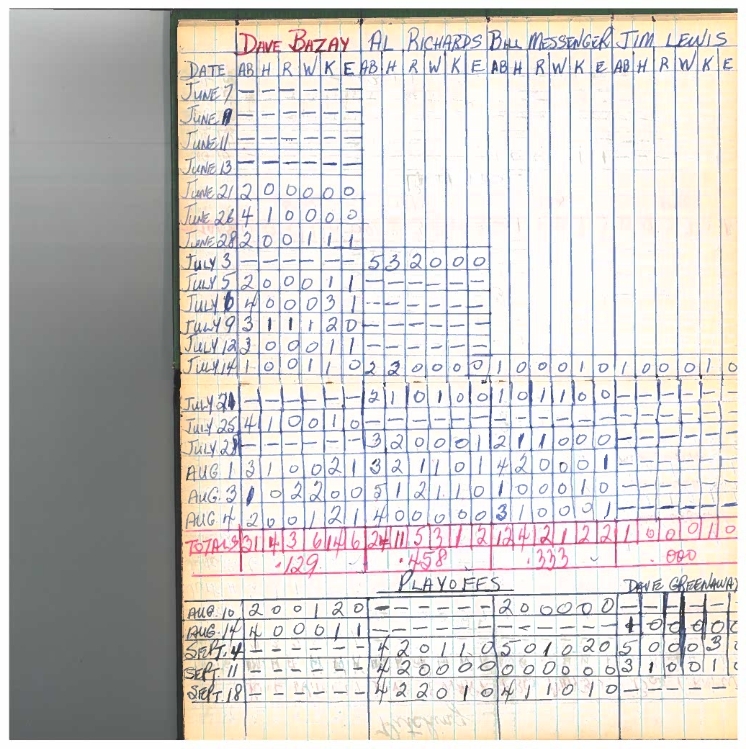 DAVE BAZAY AL RICHARDS BILL MESSENGER JIM LEWIS
DATE AB H R W K E AB H R W K E AB H R W K E AB H R W K E
JUNE 7 — — — — — —
JUNE — — — — — —
JUNE 11 — — — — — —
JUNE 13 — — — — — —
JUNE 21 2 0 0 0 0 0
JUNE 26 4 1 0 0 0 0
JUNE 28 2 0 0 1 1 1
JULY 3 — — — — — — 5 3 2 0 0 0
JULY 5 2 0 0 0 1 1 — — — — — —
JULY 6 4 0 0 0 3 1 — — — — — —
JULY 9 3 1 1 1 2 0 — — — — — —
JULY 12 3 0 0 0 1 1 — — — — — —
JULY 14 1 0 0 1 1 0 2 2 0 0 0 0 1 0 0 0 1 0 1 0 0 0 1 0
JULY — — — — — — 2 1 0 1 0 0 1 0 1 1 0 0 — — — — — —
JULY 25 4 1 0 0 1 0 — — — — — — — — — — — — — — — — — —
JULY — — — — — — 3 2 0 0 0 1 2 1 1 0 0 0 — — — — — —
AUG 1 3 1 0 0 2 1 3 2 1 1 0 1 4 2 0 0 0 1 — — — — — —
AUG. 3 1 0 2 2 0 0 5 1 2 1 1 0 1 0 0 0 1 0 — — — — — —
AUG 4 2 0 0 1 2 1 4 0 0 0 0 0 3 1 0 0 0 1 — — — — — —
TOTALS 31 4 3 6 14 6 24 11 5 3 1 2 12 4 2 1 2 2 1 0 0 0 1 0
.129 .458 .333 .000
PLAYOFFS DAVE GREENAWAY
AUG. 10 2 0 0 1 2 0 — — — — — — 2 0 0 0 0 0 — — — — — —
AUG. 14 4 0 0 0 1 1 — — — — — — — — — — — — 1 0 0 0 0 0
SEPT. 4 — — — — — — 4 2 0 1 1 0 5 0 1 0 2 0 5 0 0 0 3 0
SEPT. 11 — — — — — — 4 2 0 0 0 0 0 0 0 0 0 0 3 1 0 0 1 0
SEPT. 18 — — — — — — 4 2 2 0 1 0 4 1 1 0 1 0 — — — — — —